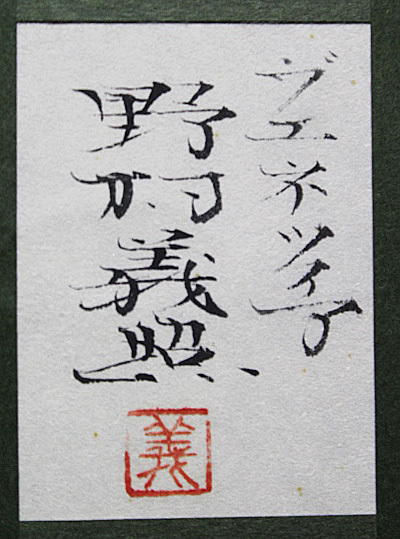 ヴェネツィア
野村義照
義